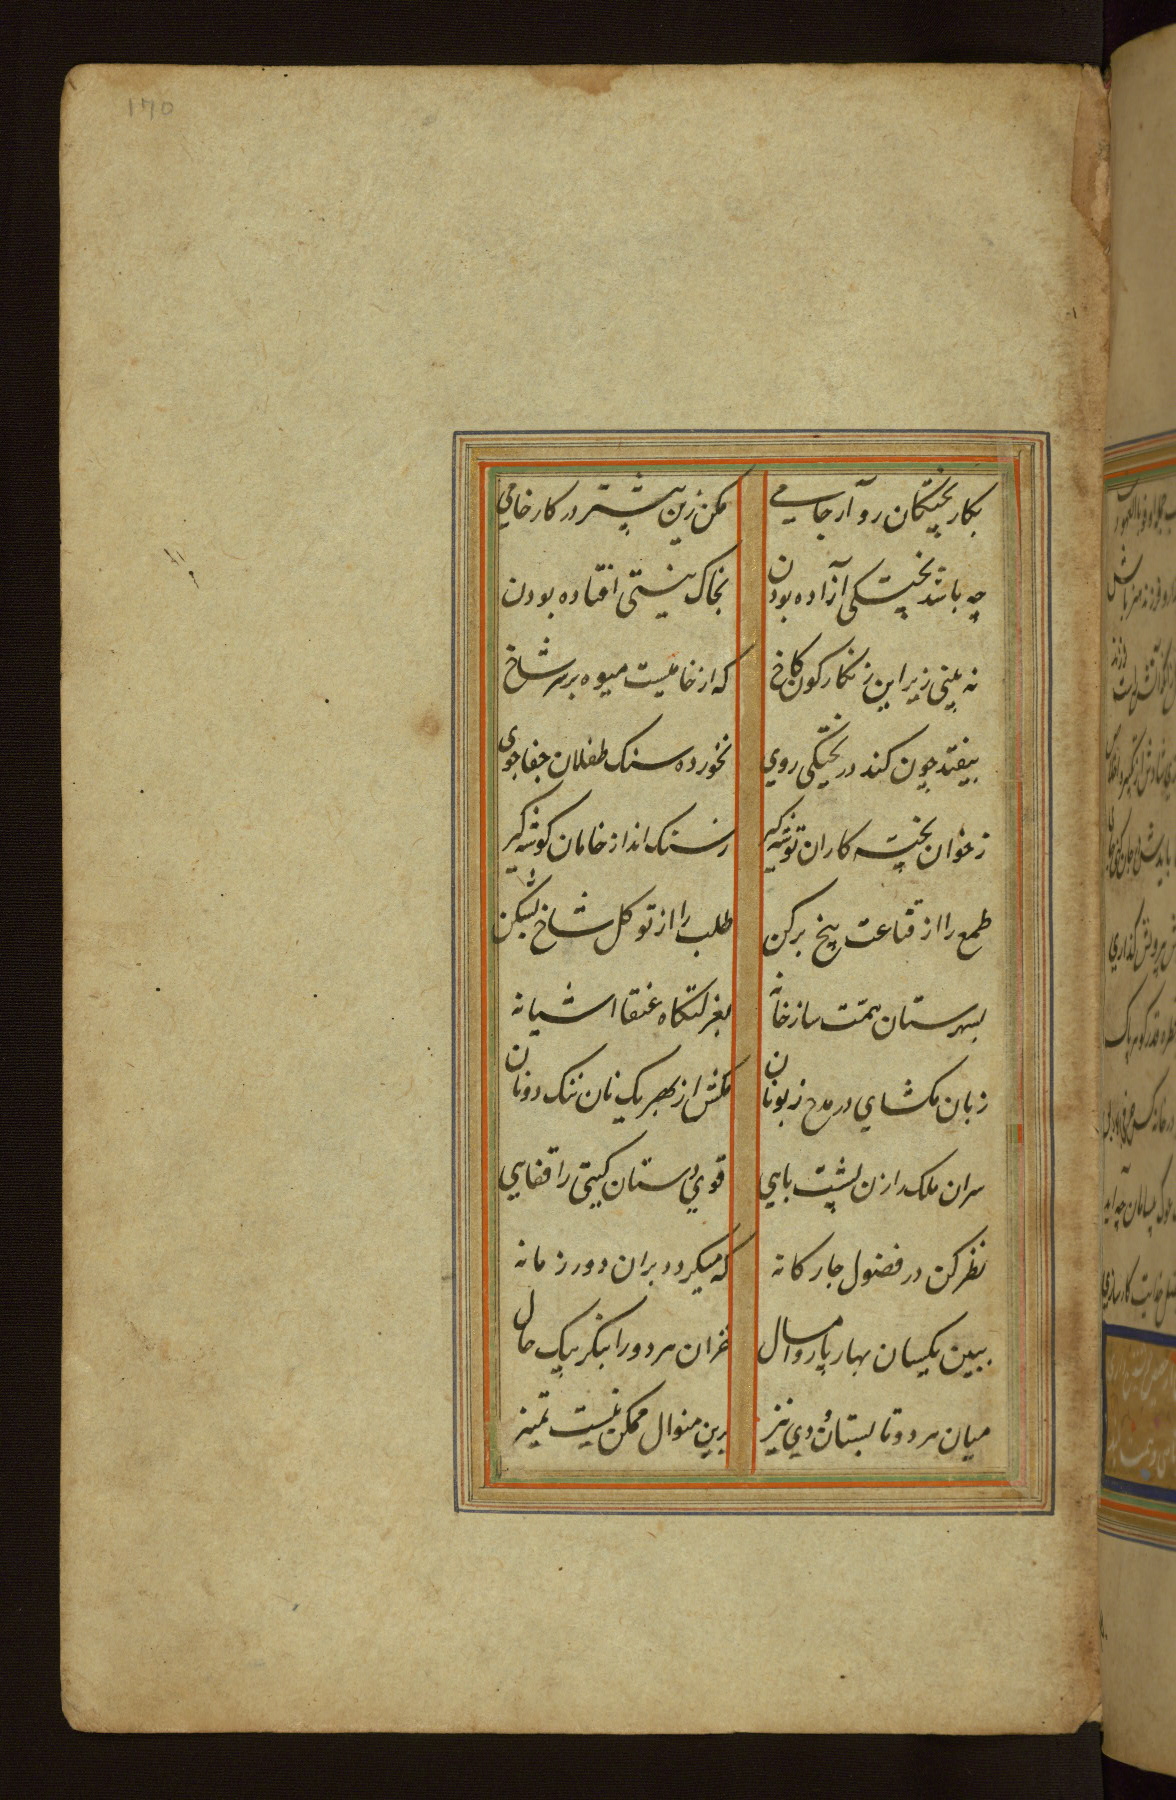 170
بکار پختکان رو آر جامی مکن زین پیشتر در کار خامی
چه باشد پختکی آزاده بودن بخاک نیستی افتاده بودن
نه بینی زیر این زنکارکون کاخ که از خامیست میوه بر سر شاخ
بیفتد چون کند در پختکی روی نخورده سنک طفلان جفاجوی
ز خوان پخته کاران توشه کیر ز سنک انداز خامان کوشه کیر
طمع را از قناعت بیخ برکن طلب را از توکل شاخ بشکن
بسهرستان همت ساز خانه بعزلتکاه عنقا اشیانه
زبان مکشای در مدح زبونان مکش از بهر یک نان ننک دونان
سران ملک را زن پشت پایی قوی دستان کیتی را قفایی
نظر کن در فضول چارکانه که میکردد بران دور زمانه
ببین یکسان بهار پار و امسال خزان هر دو را بنکر بیک حال
میان هر دو تابستان و دی نیز برین منوال ممکن نیست تمیز